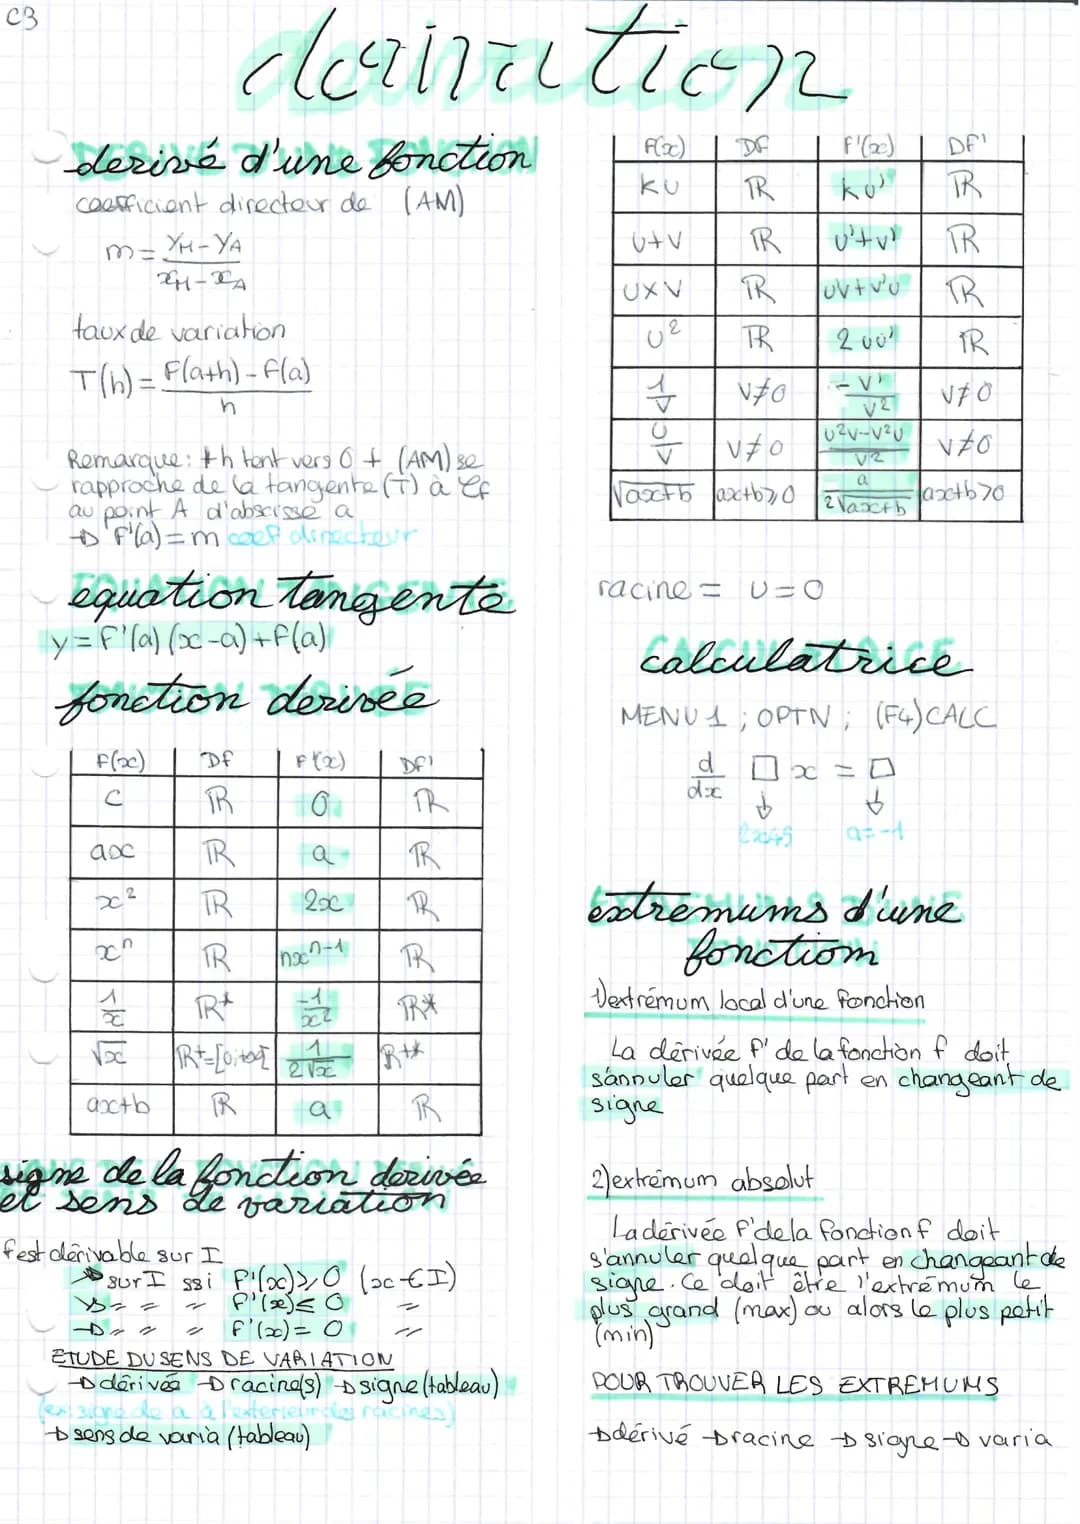 C3
derivation
derivé d'une fonction
coefficient directeur de (AM)
m = (yM - yA) / (xM - xA)
taux de variation
T(h) = (F(a+h) - f(a)) / h
Remarque: + h tent vers 0 + (AM) se
rapproche de la tangente (T) à Cf
au point A d'abscisse a
→ F'(a) = m coef directeur
équation tangente
y = F'(a) (x - a) + f(a)
fonction derivée
F(x) Df F'(x) Df'
C ℝ 0 ℝ
ax ℝ a ℝ
x² ℝ 2x ℝ
xⁿ ℝ nxⁿ⁻¹ ℝ
1/x ℝ* -1/x² ℝ*
√x ℝ+=[0;+∞[ 1/(2√x) ℝ+*
ax+b ℝ a ℝ
signe de la fonction derivée
et sens de variation
f est dérivable sur I
↗ sur I ssi F'(x) ⩾ 0 (x ∈ I)
↘ " " " F'(x) ⩽ 0 "
→ " " " F'(x) = 0 "
ETUDE DU SENS DE VARIATION
→ dérivée → racine(s) → signe (tableau)
(ex: signe de a à l'exterieur des racines)
→ sens de varia (tableau)
F(x) DF F'(x) DF'
KU ℝ KU' ℝ
U+V ℝ U'+V' ℝ
U×V ℝ UV+V'U ℝ
U² ℝ 2UU' ℝ
1/V V≠0 -V'/V² V≠0
U/V V≠0 (U²V-V²U)/V² V≠0
√ax+b ax+b⩾0 a/(2√ax+b) ax+b>0
racine = U = 0
calculatrice
MENU 1 ; OPTN ; (F4) CALC
d/dx □ x = □
↓ ↓
a=-1
extremums d'une
fonction
1) extrémum local d'une fonction
La dérivée f' de la fonction f doit
s'annuler quelque part en changeant de
signe
2) extrémum absolut
La dérivée F' de la fonction f doit
s'annuler quelque part en changeant de
signe. Ce doit être l'extrémum le
plus grand (max) ou alors le plus petit
(min)
POUR TROUVER LES EXTREMUMS
→ dérivé → racine → signe → varia